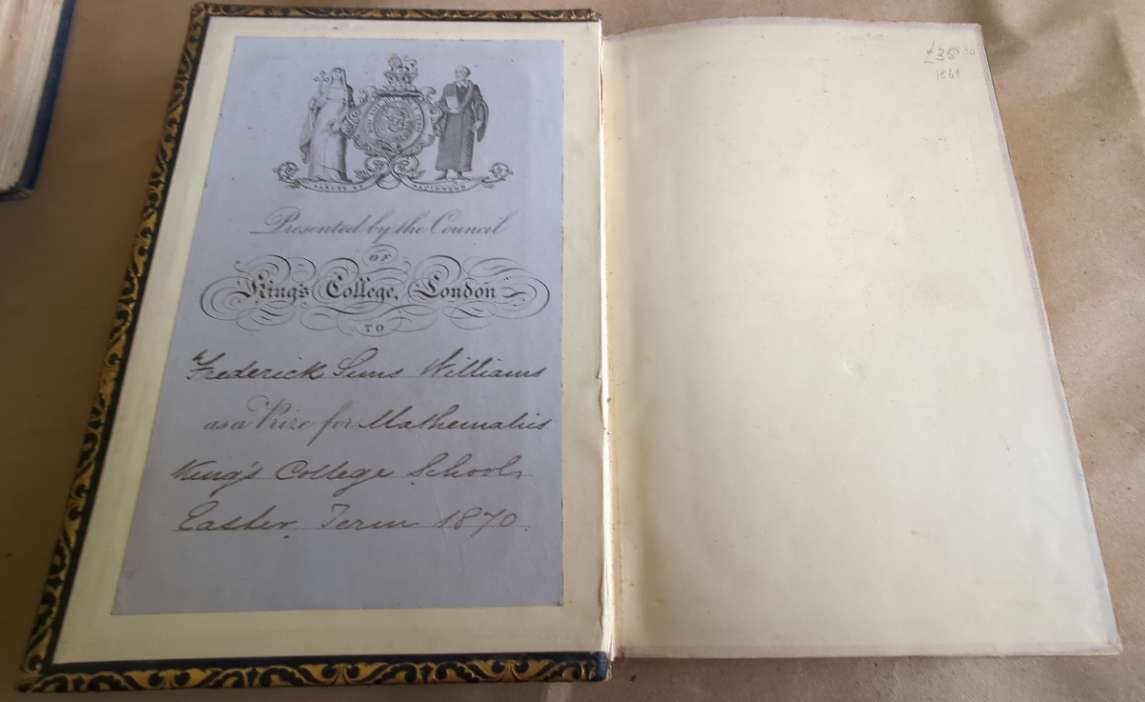 SANCTE ET SAPIENTER
Presented by the Council
OF
King's College, London
TO
Frederick Sims Williams
as a Prize for Mathematics
King's College School,
Easter Term 1870.
£35
1861